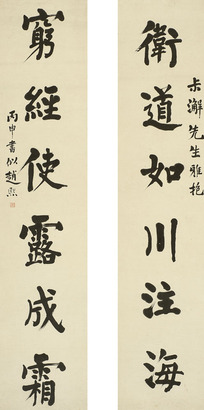 衛道如川注海
尗澥先生雅挹
窮經使露成霜
丙申書似趙熙